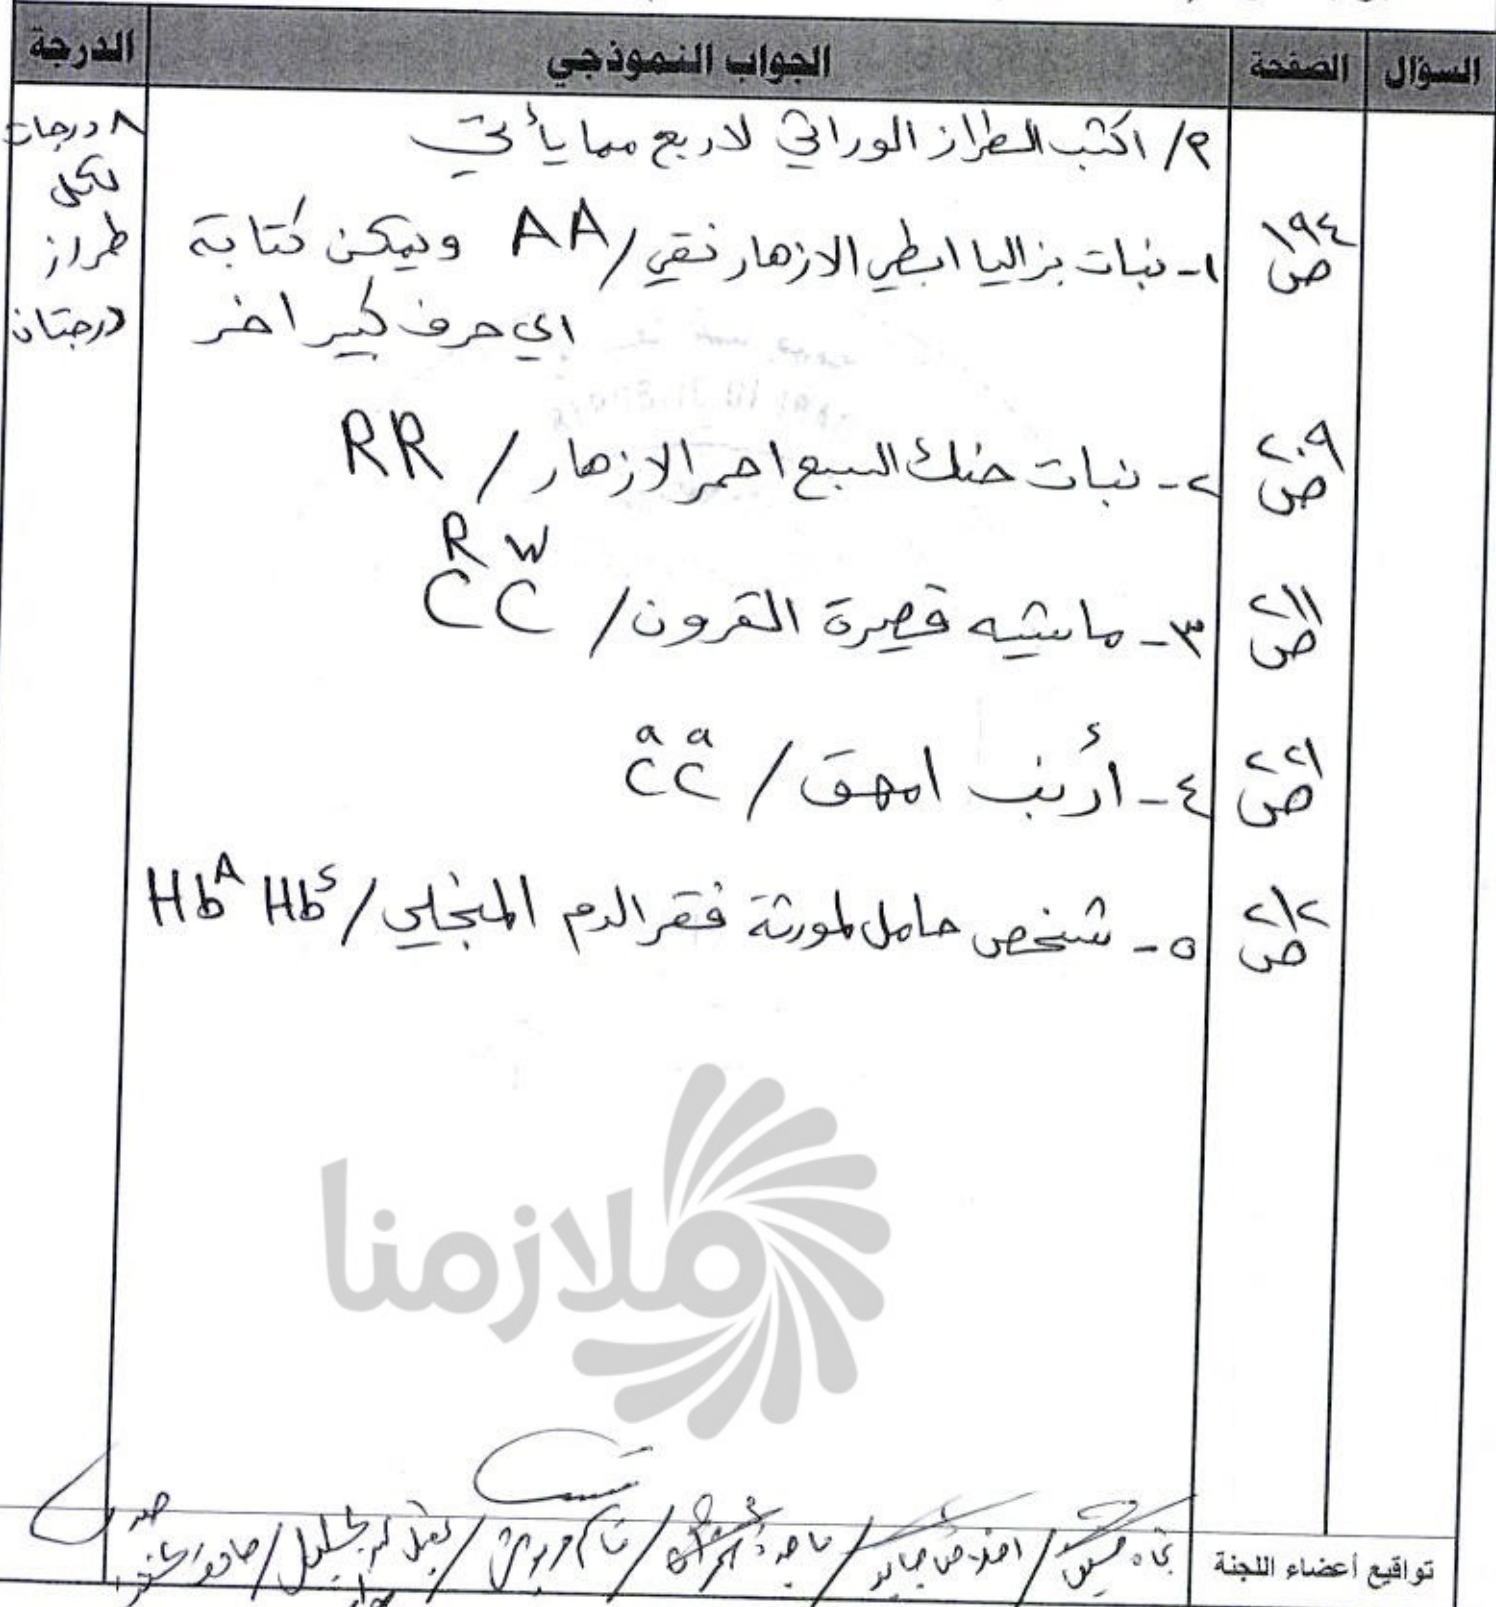 السؤال الصفحة الجواب النموذجي الدرجة
م/ اكتب الطراز الوراثي لاربع مما يأتي
٨ درجات
لكل
طراز
درجتان
ص١٩٤
١- نبات بزاليا ابطي الازهار نقي / AA ويمكن كتابة
اي حرف كبير اخر
ص٢٠٩
٢- نبات حنك السبع احمر الازهار / RR
ص٢١١
٣- ماشيه قصيرة القرون / CᴿCᵂ
ص٢٢١
٤- أرنب امهق / cᵃcᵃ
ص٢١٢
٥- شخص حامل لمورثة فقر الدم المنجلي / Hbᴬ Hbˢ
ملازمنا
تواقيع أعضاء اللجنة